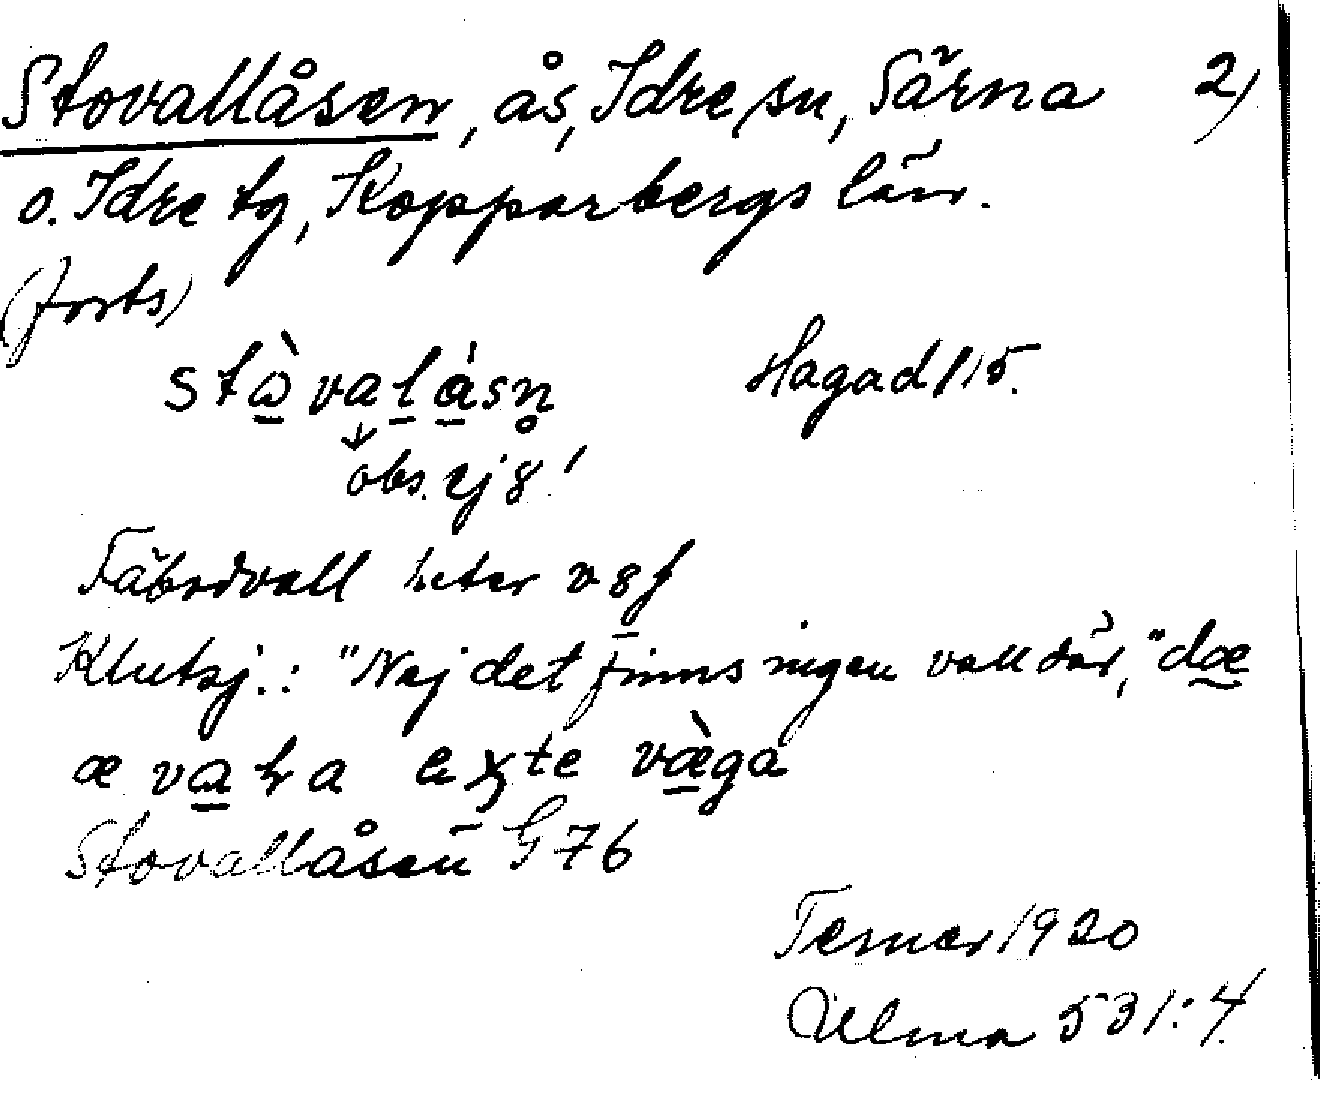 Stovallåsen, ås, Idre sn, Särna 2)
o. Idre tg, Kopparbergs län.
(forts)
stɷ̀valåsn̥ Hagad 1/15.
obs. ej 8!
Fäbodvall heter v8ɫ
Klutsj.: "Nej det finns ingen vall där," dæ
æ vaɽa væ̀ga
Stovallåsen G 76
Terner 1920
Ulma 531:4.